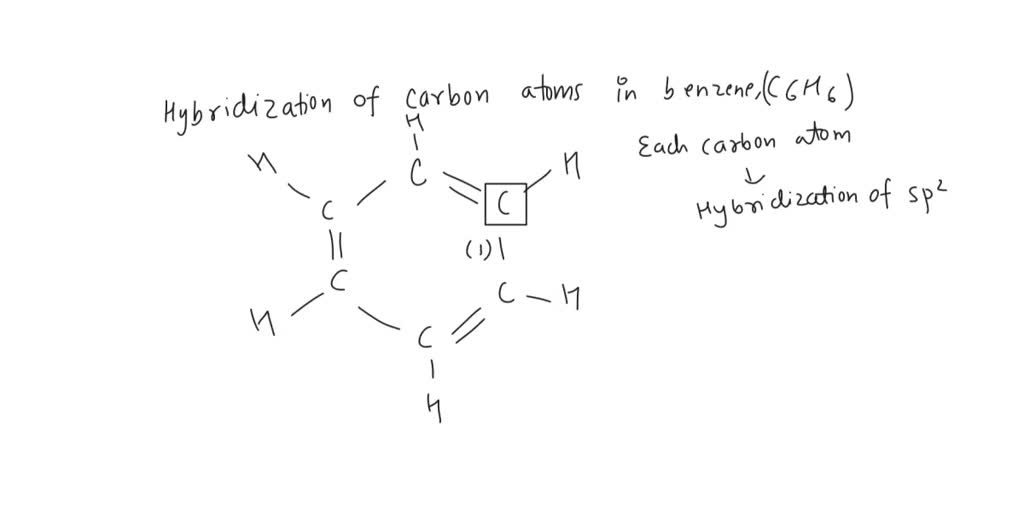 Hybridization of carbon atoms in benzene,(C6H6)
Each carbon atom
↓
Hybridization of sp²
H
H
C
H
C
C
(1)
C
C
H
H
C
H